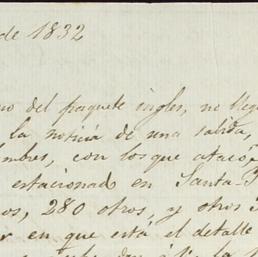 de 1832
no del paquete ingles, no lleg
la noticia de una salida,
mbres, con los que atacó
estacionado en Santa
os, 280 otros, y otros
en que está el detalle